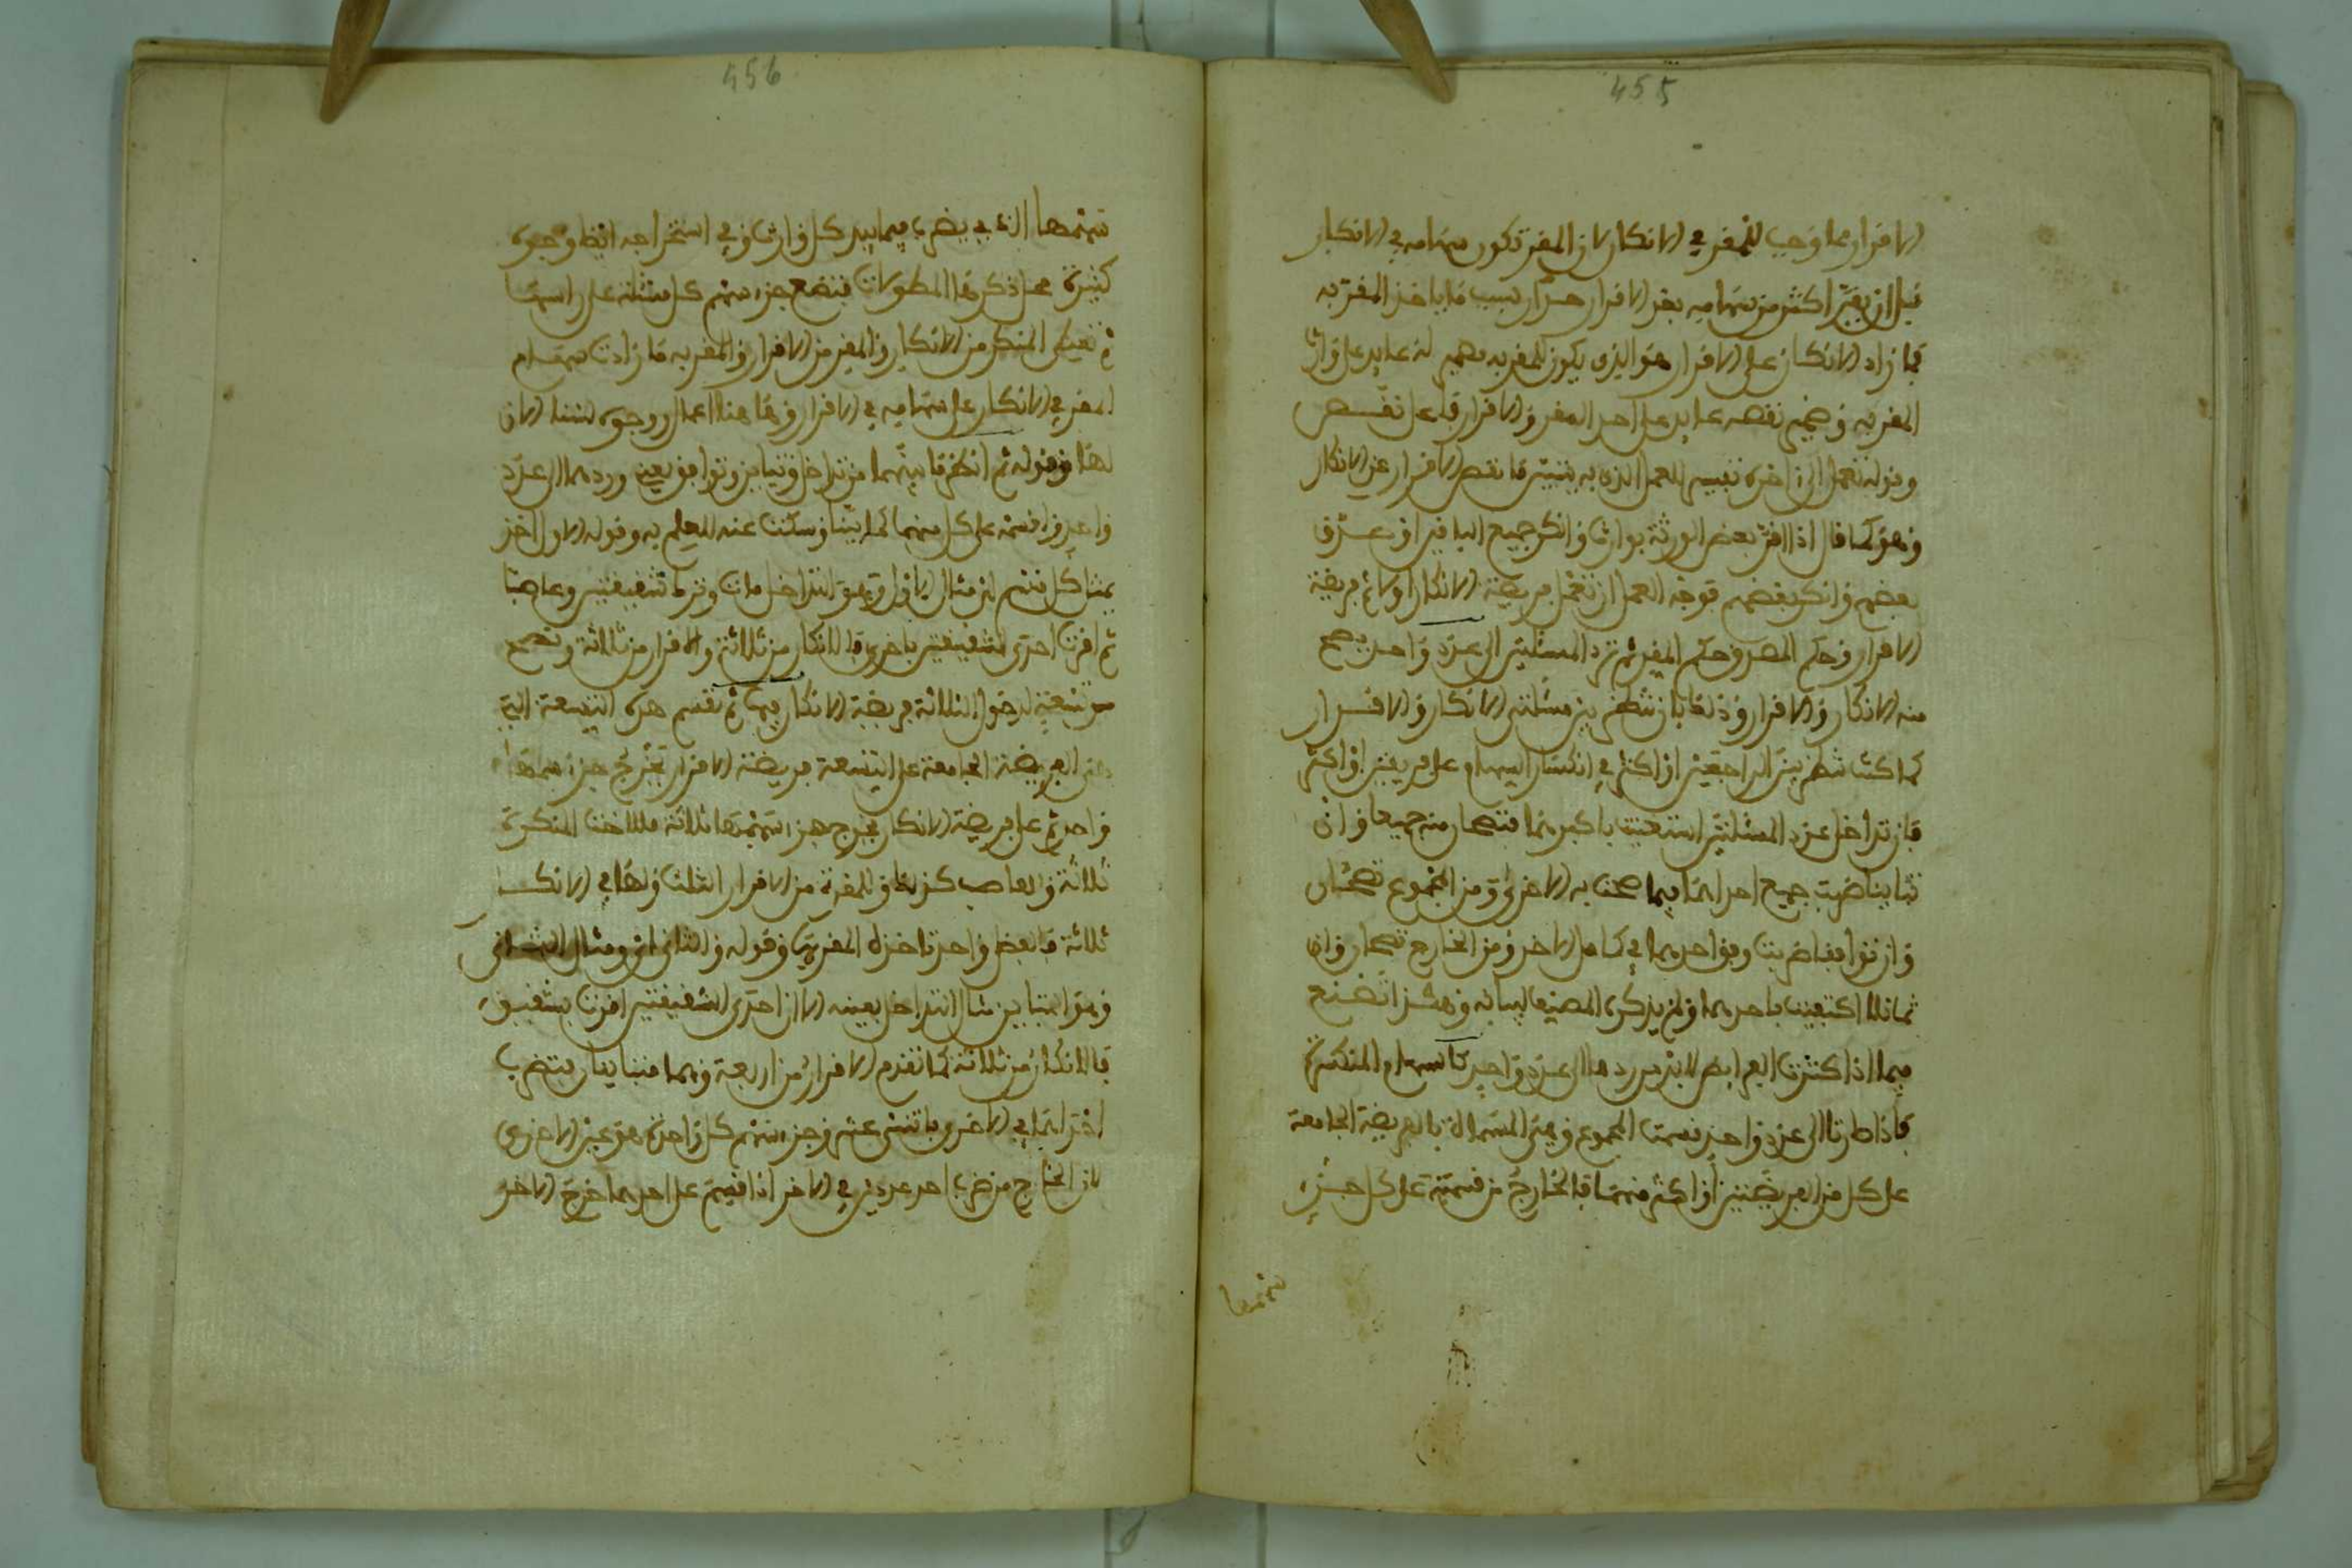 455
الاقرار مما وجب للمقر في الانكار لان المقر تكون سهامه في الانكار
قبل ان يقر اكثر من سهامه بعد الاقرار بسبب ما ياخذ المقر به
فما زاد الانكار على الاقرار هو الذي يكون للمقر به
المقر به نقصه على يد احد المقر والاقرار
وقوله تعمل الى اخره تفسير للعمل الذي به يتبين ما نقص الاقرار عن الانكار
وهو كما قال اذا اقر بعض الورثة بوارث وانكر جميع الباقين او صدق
بعضهم وانكر بعضهم فوجه العمل ان تعمل فريضة الانكار اولا ثم فريضة
الاقرار وحكم المقر ثم ترد المسئلتين الى عدد واحد يصح
منه الانكار والاقرار وذلك بان تنظر بين مسئلتي الانكار والاقرار
كما كنت تنظر بين الراجعين او اكثر في انكسار السهام على فريقين او اكثر
فان تداخل عدد المسئلتين استغنيت باكبرهما فتصحان منه جميعا وان
تباينا ضربت جميع احداهما فيما صحت به الاخرى ومن المجموع تصحان
وان توافقا ضربت وفق احدهما في كامل الاخر ومن الخارج تصحان وان
تماثلا اكتفيت باحدهما ولم يذكره المصنف لبيانه وهكذا تصنع
فيما اذا كثرت الفرائض لابد من ردها الى عدد واحد كالسهام المنكسرة
فاذا صارتا الى عدد واحد قسمت المجموع وهي المسماة بالفريضة الجامعة
على كل من الفريضتين او اكثر منهما فالخارج من قسمته على كل جزء
سهمها
456
سهمها الذي يضرب فيما بيد كل وارث وفي استخراجه ايضا وجوه
كثيرة محل ذكرها المطولات فتضع جزء سهم كل مسئلة على راسها
ثم تعطي المنكر من الانكار والمقر من الاقرار والمقر به ما زادت سهام
المقر في الانكار على سهامه في الاقرار وها هنا اعمال ووجوه لسنا الان
لها وقوله ثم انظر ما بينهما من تداخل وتباين وتوافق يعني وردهما الى عدد
واحد واقسمه على كل منهما كما بينا وسكت عنه للعلم به وقوله الاول اخذ
يمثل كل قسم مثال الاول وهو التداخل ماتت وتركت شقيقتين وعاصبا
ثم اقرت احدى الشقيقتين باخرى فالانكار من ثلاثة والاقرار من ثلاثة وتصح
من تسعة لدخول الثلاثة فريضة الانكار فيها ثم تقسم هذه التسعة التي
هي الفريضة الجامعة على التسعة فريضة الاقرار يخرج جزء سهمها
واحد ثم على فريضة الانكار يخرج جزء سهمها ثلاثة فللاخت المنكرة
ثلاثة والعاصب كذلك وللمقرة من الاقرار اثنان ولها في الانكار
ثلاثة فالفضل واحد تاخذه المقر بها وقوله والثاني اي ومثال الثاني
وهو التباين مثال التداخل بعينه الا ان احدى الشقيقتين اقرت بشقيق
فالانكار من ثلاثة كما تقدم الاقرار من اربعة وهما متباينان فتضرب
احداهما في الاخرى باثني عشر وجزء سهم كل واحدة هو عين الاخرى
لان الخارج من ضرب احد عددين في الاخر اذا قسم على احدهما خرج الاخر